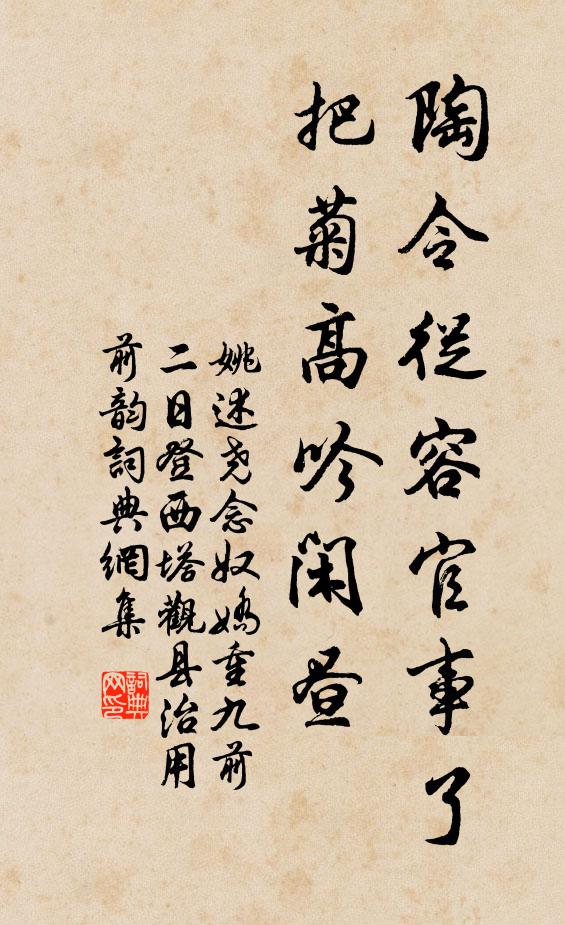 陶令從容官事了
把菊高吟闲昼
姚述尧念奴嬌重九前
二日登西塔觀县治用
前韵詞典網集
詞典
网印